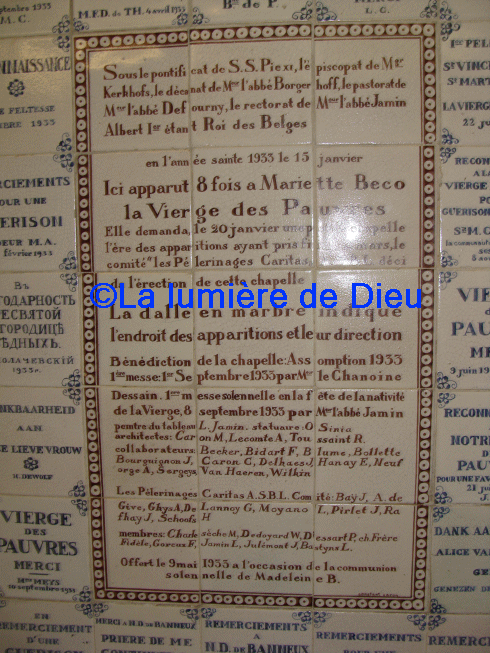 Sous le pontificat de S.S. Pie XI, l'épiscopat de Mgr
Kerkhofs, le décanat de Mgr l'abbé Borgerhoff, le pastorat de
Mgr l'abbé Defourny, le rectorat de Mgr l'abbé Jamin
Albert Ier étant Roi des Belges
en l'année sainte 1933 le 15 janvier
Ici apparut 8 fois a Mariette Beco
la Vierge des Pauvres
Elle demanda, le 20 janvier une chapelle
l'ère des apparitions ayant pris mars, le
comité "les Pèlerinages Caritas
de l'érection de cette chapelle
©La lumière de Dieu
La dalle en marbre indique
l'endroit des apparitions et leur direction
Bénédiction de la chapelle: Assomption 1933
1ère messe: 1er Septembre 1933 par Mgr le Chanoine
Dessain. 1ère messe solennelle en la fête de la nativité
de la Vierge, 8 septembre 1933 par Mgr l'abbé Jamin
peintre du tableau L. Jamin. statuaire: O Sinia
architectes: Caron M, Lecomte A, Toussaint R.
collaborateurs: Becker, Bidart F, Blume, Bollette
Bourguignon J, Caron C, Delhaes J, Hanay E, Neuf
orge A, Sergeys Van Haeren, Wilkin
Les Pèlerinages Caritas A.S.B.L. Comité: Bay J, A. de
Give, Ghys A, De Lannoy G, Moyano L, Pirlet J, Ra
fhay J, Schoofs H
membres: Charlesèche M, Dedoyard W, Dessart P, ch. Frère
Fidèle, Gorcus F, Jamin L, Julémont J, Bastyns L.
Offert le 9 mai 1935 a l'occasion de la communion
solennelle de Madeleine B.
M.E.D. de TH. 4 avril 1933
Bse de P.
L.C.
M.C.
NNAISSANCE
DE PELTESSE
MBRE 1933
MERCIEMENTS
POUR UNE
UERISON
OEUR M.A.
février 1933
EN
GODARNOSTЬ
ANKBAARHEID
AAN
E LIEVE VROUW
H. DEWOLF
VIERGE
DES
PAUVRES
MERCI
10 septembre 1935
EN
REMERCIEMENT
D'UNE
MERCI A N.D. DE BANNEUX
PRIERE DE ME
REMERCIEMENTS
A
N.D. DE BANNEUX
REMERCIEMENTS
POUR
REMERCIEMENT
ST VINCEN
ST MART
LA VIERGE
22 ju
RECON
A LA
VIERGE
POUR
GUERISON
VIERG
DES
PAUV
9 juin 19
RECONN
NOTRE
DES
PAUV
POUR UNE FAV
DANK AAN
ALICE VAN
GENEZEN DE